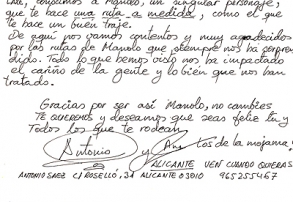 conocimos a Manolo, un singular personaje,
que te hace una ruta a medida, como el que
te hace un buen traje.
De aquí nos vamos contentos y muy agradecidos
por las rutas de Manolo que siempre nos ha sorpren
dido. Todo lo que hemos visto nos ha impactado
el cariño de la gente y lo bien que nos han
tratado.
Gracias por ser así Manolo, no cambies
TE QUEREMOS y deseamos que seas feliz tu y
Todos los que te rodean
Antonio y
tos de la mojama!
ALICANTE VEN CUANDO QUIERAS
ANTONIO SAEZ C/ ROSELLÓ, 34 ALICANTE 03010 965255467